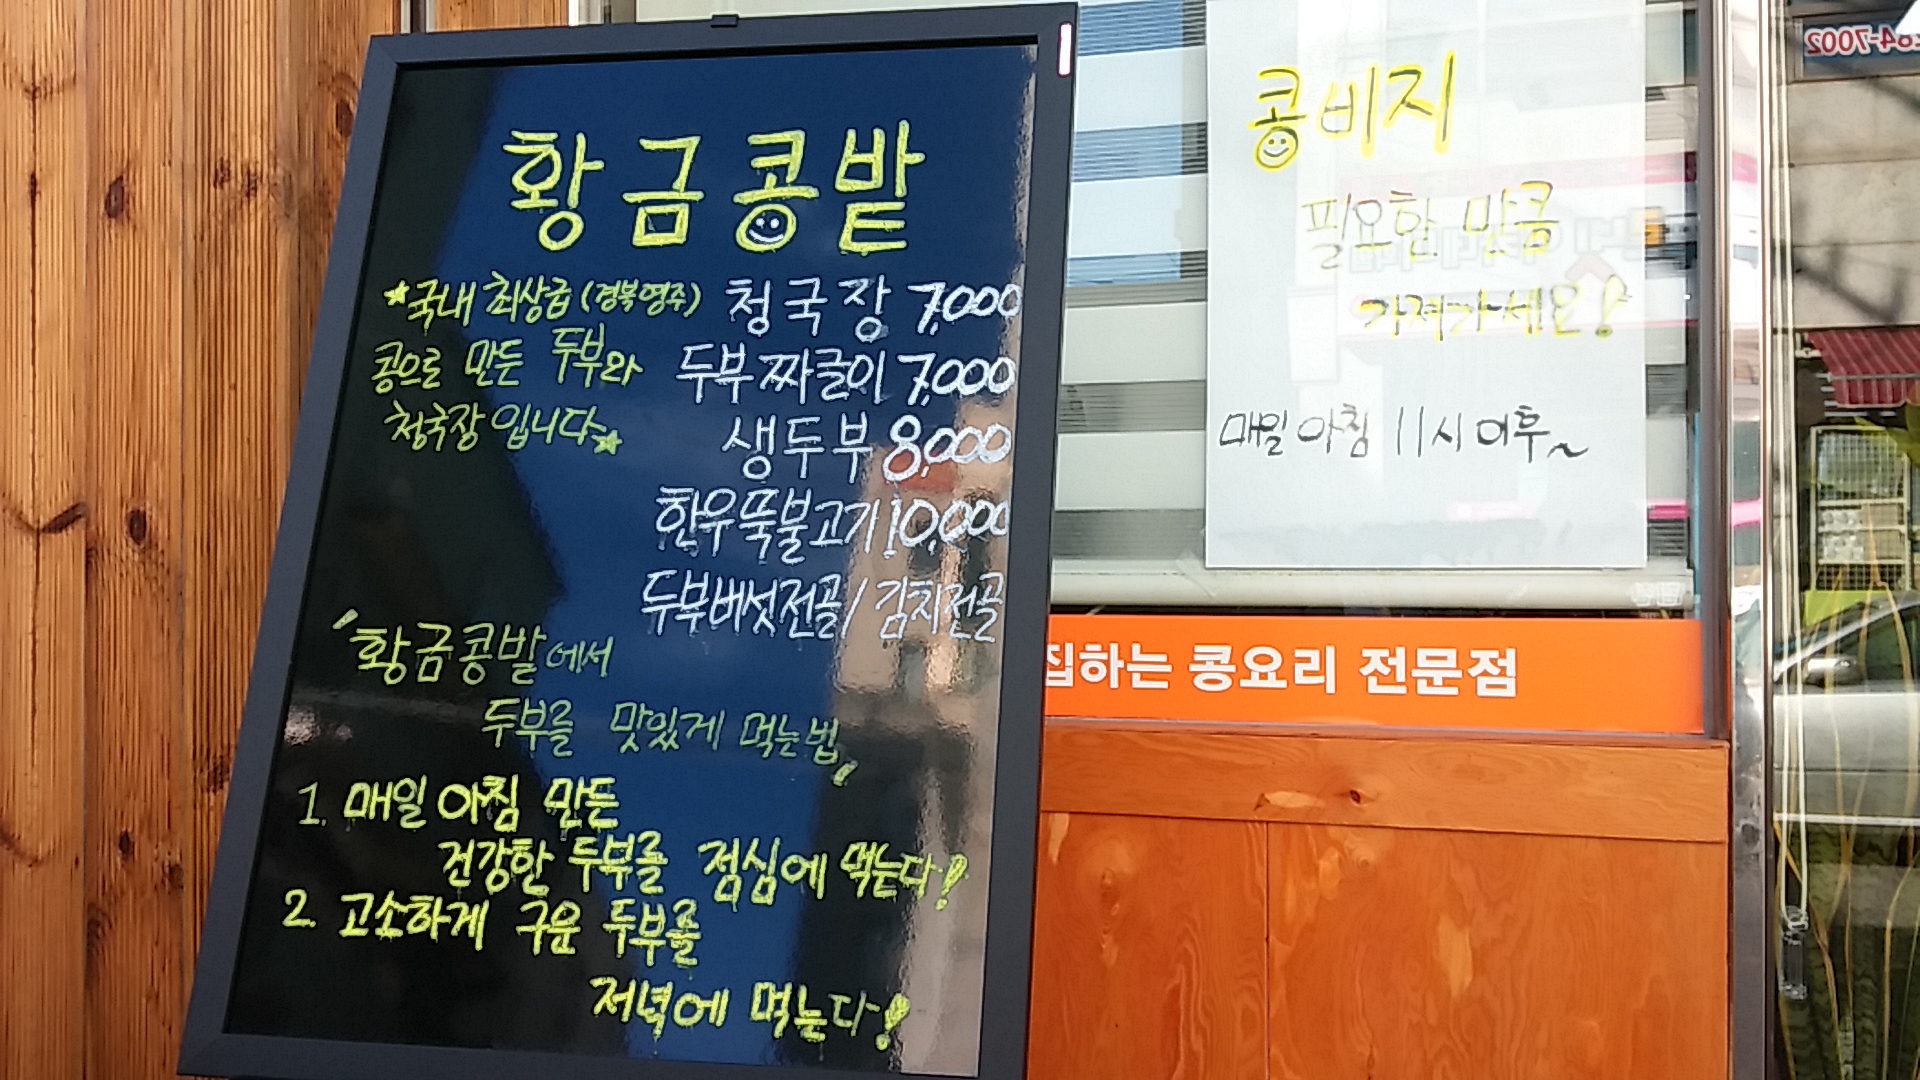 황금콩밭
★국내 최상급 (경북영주)
콩으로 만든 두부와
청국장 입니다★
청국장 7,000
두부짜글이 7,000
생두부 8,000
한우뚝불고기 10,000
두부버섯전골/김치전골
황금콩밭에서
두부를 맛있게 먹는법!
1. 매일 아침 만든
건강한 두부를 점심에 먹는다!
2. 고소하게 구운 두부를
저녁에 먹는다!
콩비지
필요한 만큼
가져가세요!
매일 아침 11시 이후~
집하는 콩요리 전문점